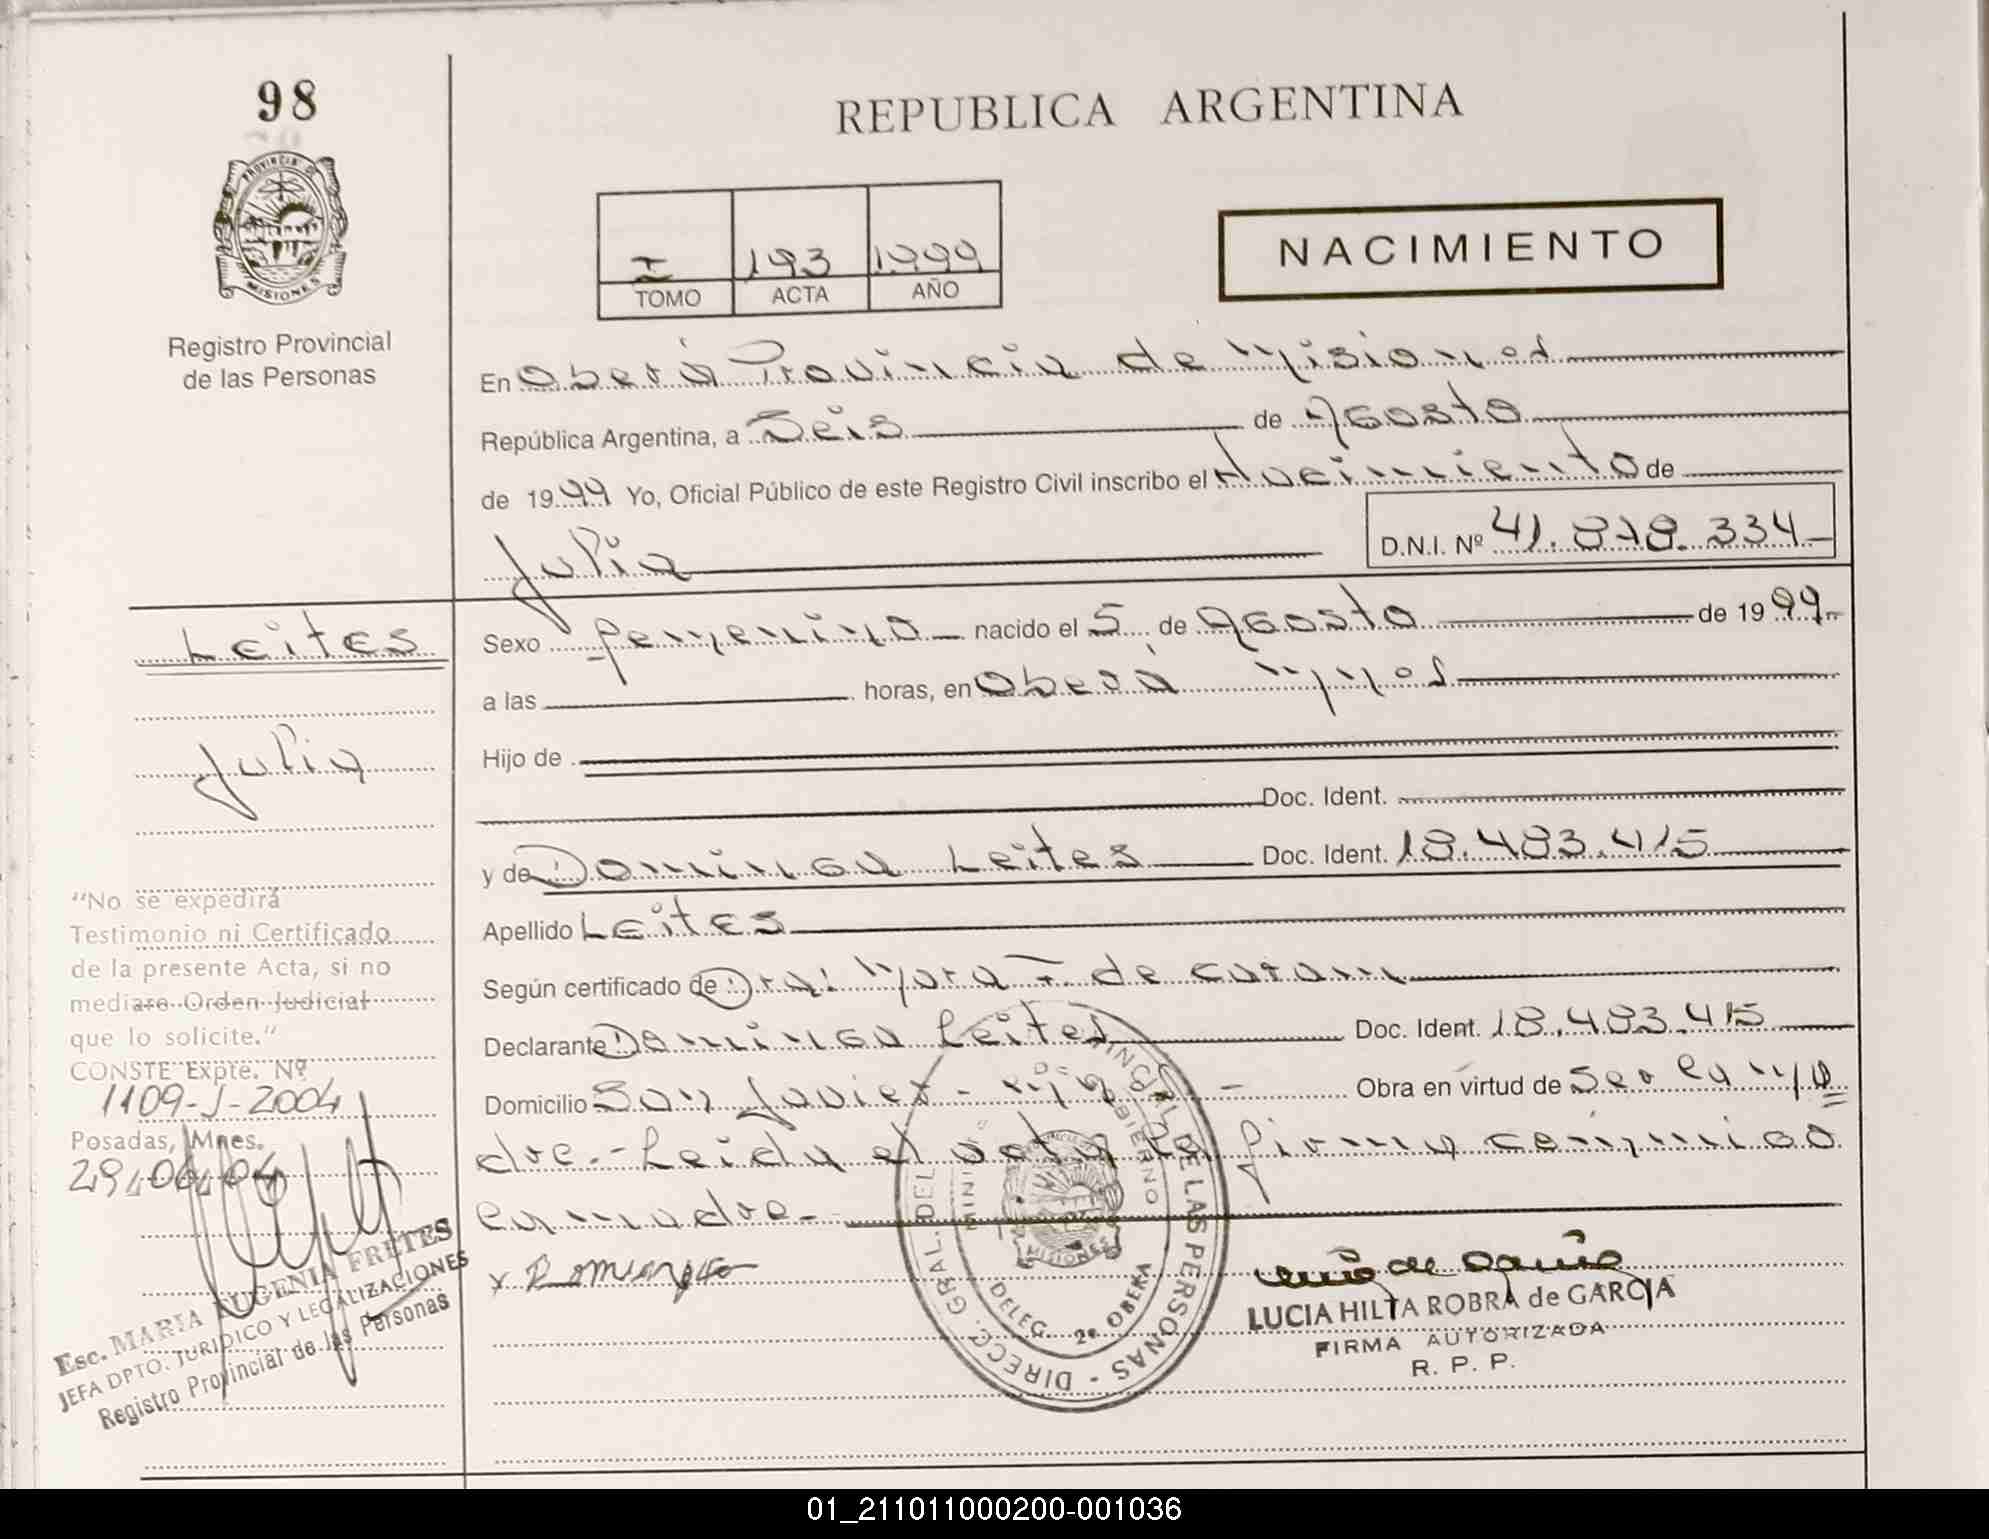 98
REPUBLICA ARGENTINA
PROVINCIA DE
MISIONES
Registro Provincial
de las Personas
I 193 1999
TOMO ACTA AÑO
NACIMIENTO
En Oberá Provincia de Misiones
República Argentina, a Seis de Agosto
de 1999 Yo, Oficial Público de este Registro Civil inscribo el Nacimiento de
Julia
D.N.I. Nº 41.878.334
Leites
Julia
Sexo femenino nacido el 5 de Agosto de 1999
a las horas, en Oberá Mnes
Hijo de
Doc. Ident.
y de Dominga Leites Doc. Ident. 18.483.415
Apellido Leites
Según certificado de Dra: de
Declarante Dominga Leites Doc. Ident. 18.483.415
Domicilio San Javier - Obra en virtud de Ser la ma
dre.- Leida el acta la firma conmigo
la madre.-
x Dominga
"No se expedirá
Testimonio ni Certificado
de la presente Acta, si no
mediare Orden Judicial
que lo solicite."
CONSTE Expte. Nº
1109-J-2004
Posadas, Mnes.
29,06,04
Esc. MARIA EUGENIA FRETES
JEFA DPTO. JURIDICO Y LEGALIZACIONES
Registro Provincial de las Personas
DIRECC. GRAL. DEL PROVINCIAL DE LAS PERSONAS -
GOBIERNO
MISIONES
DELEG. 2ª OBERA
LUCIA HILTA ROBRA de GARCIA
FIRMA AUTORIZADA
R. P. P.
01_211011000200-001036